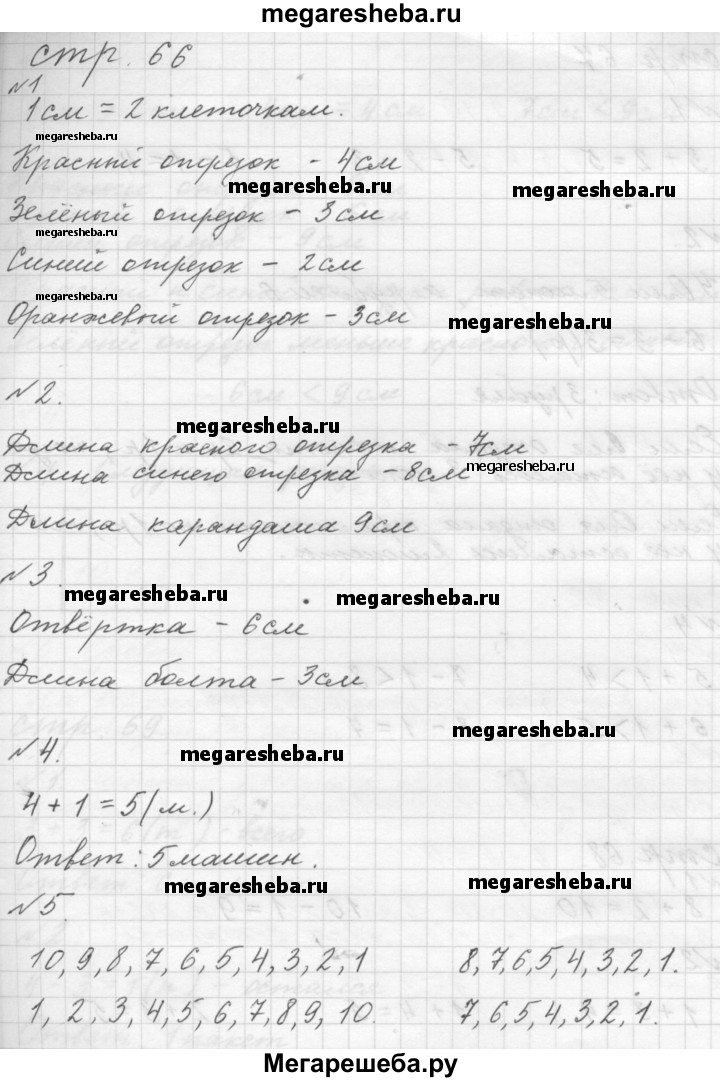 megaresheba.ru
стр. 66
№1
1см = 2 клеточкам.
megaresheba.ru
Красный отрезок - 4см
megaresheba.ru
megaresheba.ru
Зелёный отрезок - 3см
megaresheba.ru
Синий отрезок - 2см
megaresheba.ru
Оранжевый отрезок - 3см
megaresheba.ru
№2.
megaresheba.ru
Длина красного отрезка - 7см
Длина синего отрезка - 8см
megaresheba.ru
Длина карандаша 9см
№3.
megaresheba.ru
megaresheba.ru
Отвёртка - 6см
Длина болта - 3см
megaresheba.ru
№4.
megaresheba.ru
4 + 1 = 5(м.)
Ответ: 5 машин.
megaresheba.ru
megaresheba.ru
№5.
10, 9, 8, 7, 6, 5, 4, 3, 2, 1 8, 7, 6, 5, 4, 3, 2, 1.
1, 2, 3, 4, 5, 6, 7, 8, 9, 10. 7, 6, 5, 4, 3, 2, 1.
Мегарешеба.ру